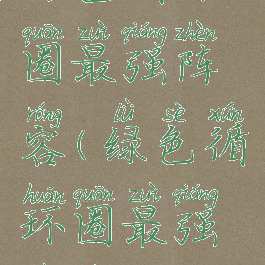 quān zuì qiáng zhèn
圈最强阵
róng lǜ sè xún
容(绿色循
huán quān zuì qiáng
环圈最强